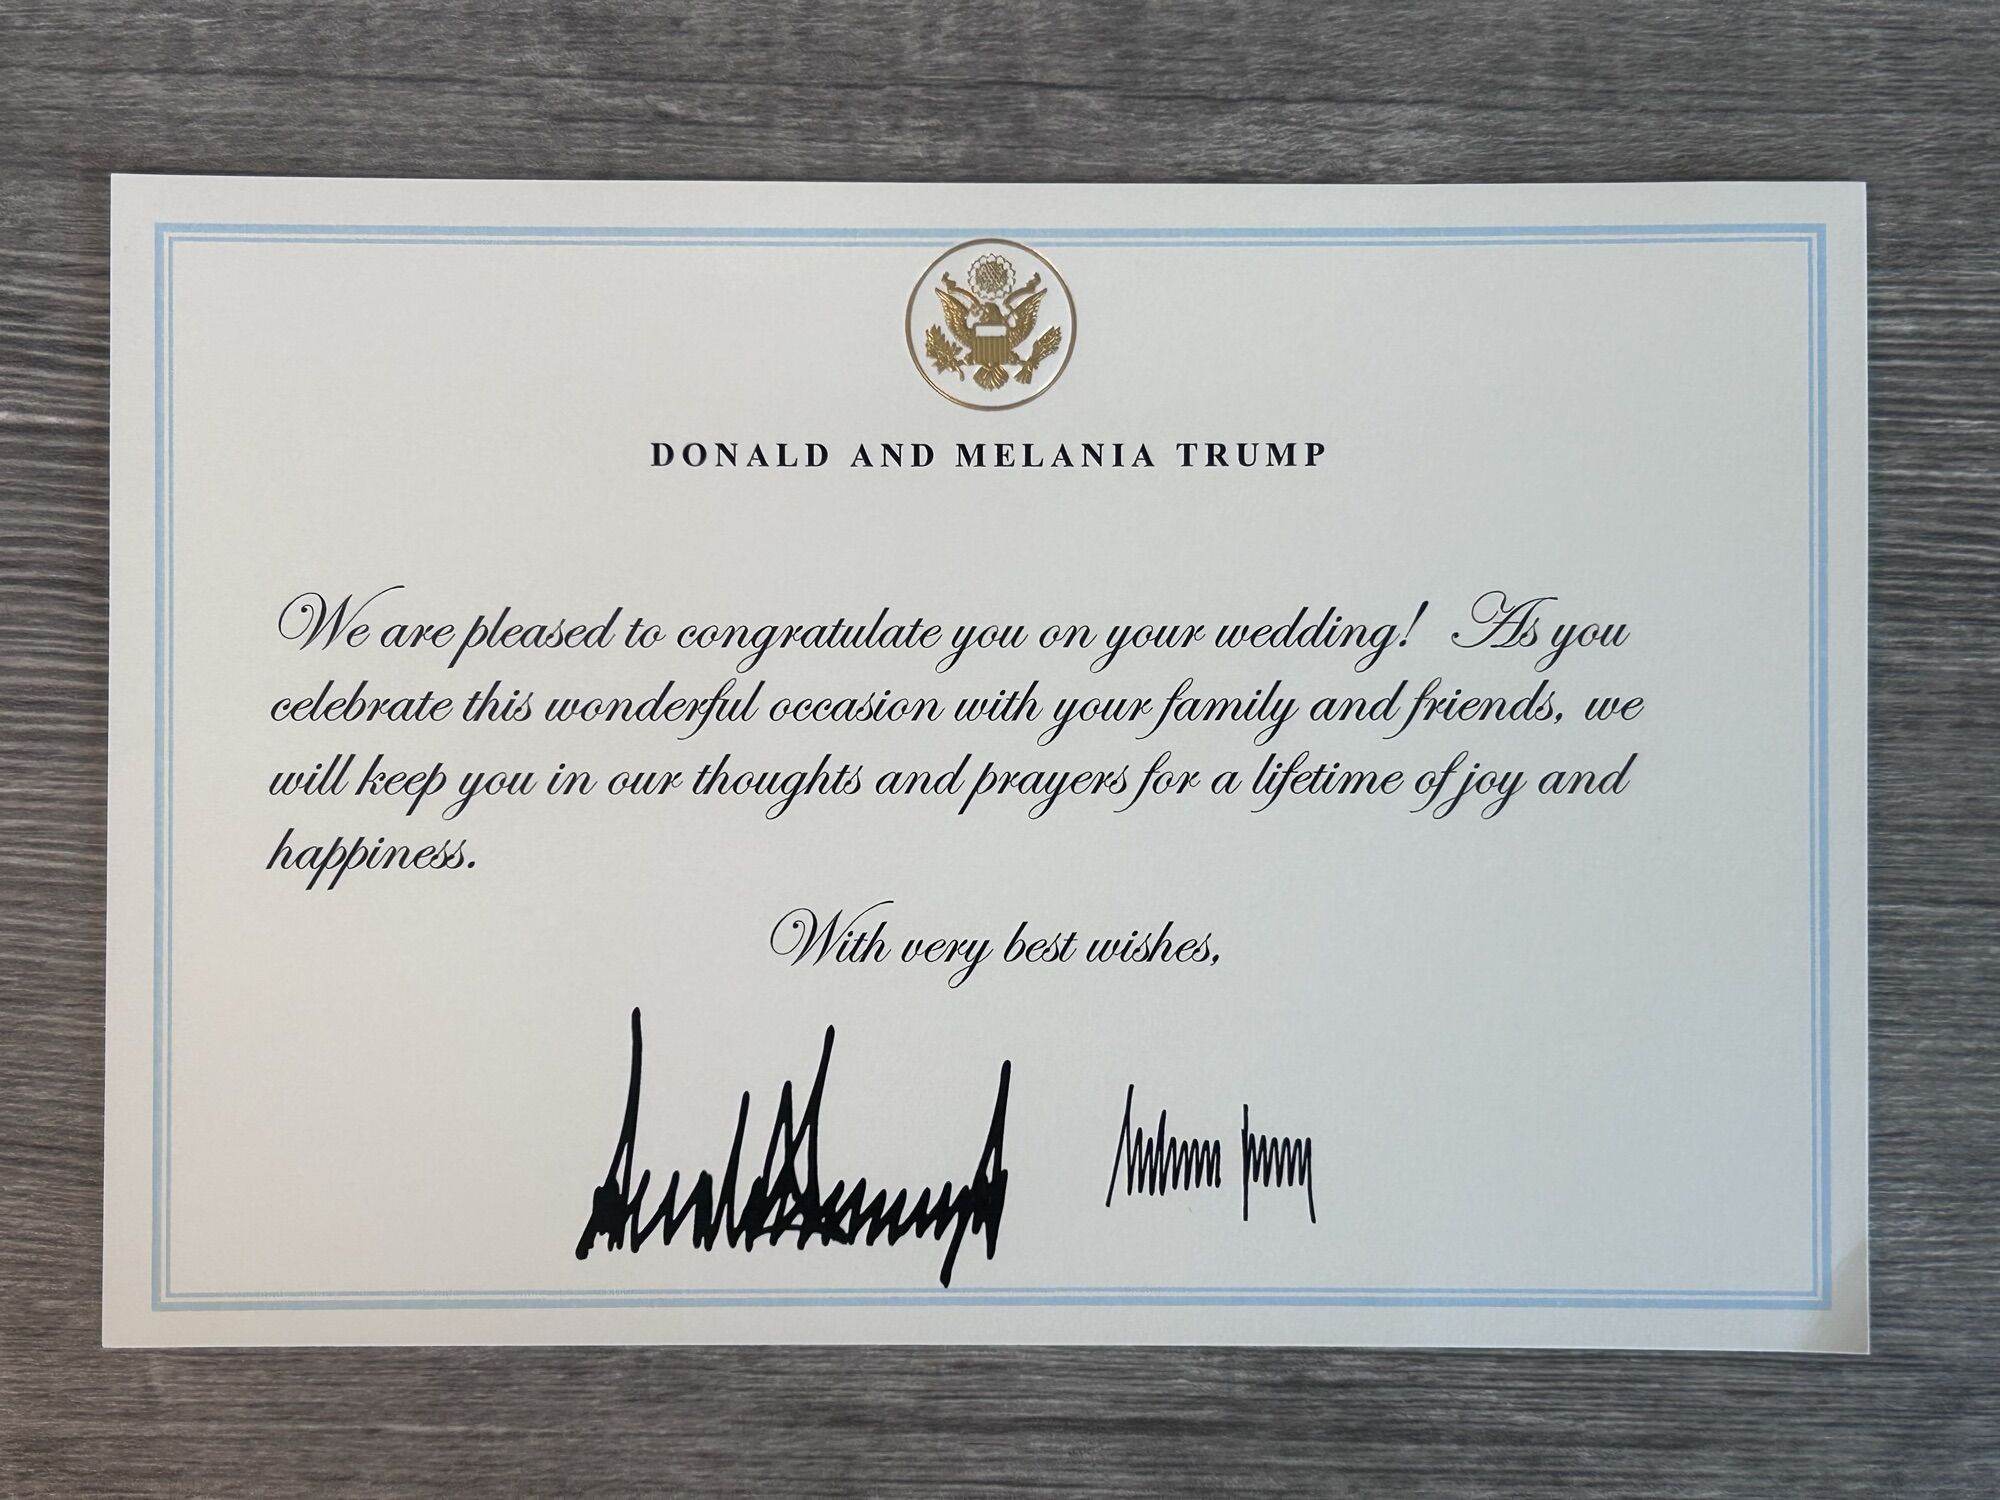 DONALD AND MELANIA TRUMP
We are pleased to congratulate you on your wedding! As you
celebrate this wonderful occasion with your family and friends, we
will keep you in our thoughts and prayers for a lifetime of joy and
happiness.
With very best wishes,